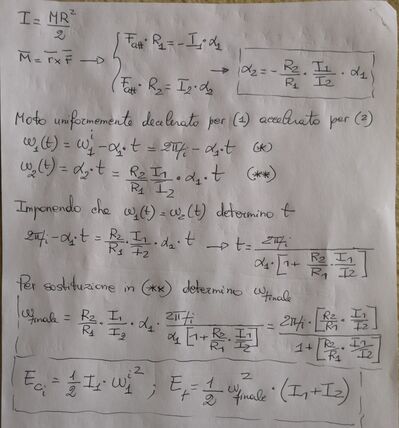 I = MR²/2
M = r x F → { Fatt · R₁ = - I₁ · α₁
Fatt · R₂ = I₂ · α₂ → α₂ = - R₂/R₁ · I₁/I₂ · α₁
Moto uniformemente decelerato per (1) accelerato per (2)
ω₁(t) = ω₁ⁱ - α₁ · t = 2πfᵢ - α₁ · t (*)
ω₂(t) = α₂ · t = R₂/R₁ I₁/I₂ · α₁ · t (**)
Imponendo che ω₁(t) = ω₂(t) determino t
2πfᵢ - α₁ · t = R₂/R₁ · I₁/I₂ · α₁ · t → t = 2πfᵢ / α₁ · [1 + R₂/R₁ I₁/I₂]
Per sostituzione in (**) determino ωfinale
ωfinale = R₂/R₁ · I₁/I₂ · α₁ · 2πfᵢ / α₁ [1 + R₂/R₁ · I₁/I₂] = 2πfᵢ · [R₂/R₁ · I₁/I₂] / 1 + [R₂/R₁ · I₁/I₂]
Ecᵢ = 1/2 I₁ · ω₁ⁱ² ; Ef = 1/2 ω²finale · (I₁ + I₂)